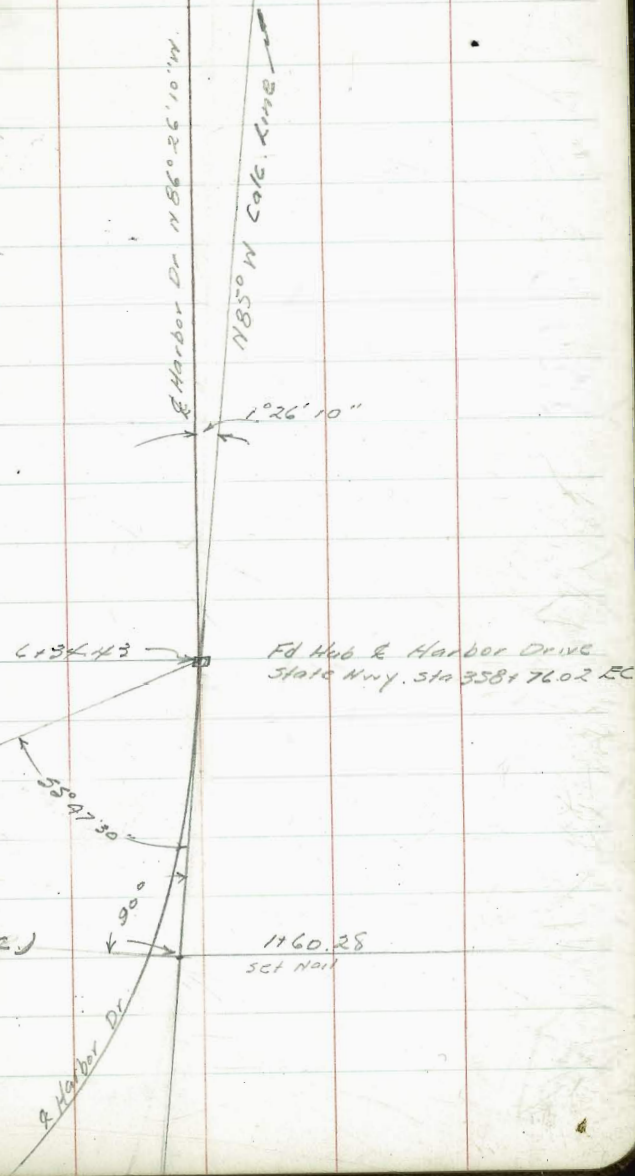 ℄ Harbor Dr N 86° 26' 10" W.
N 85° W Calc. Line
1° 26' 10"
6+34.43
Fd Hub ℄ Harbor Drive
State Hwy. Sta 358+76.02 EC
47' 30"
90°
1+60.28
Set Nail
℄ Harbor Dr